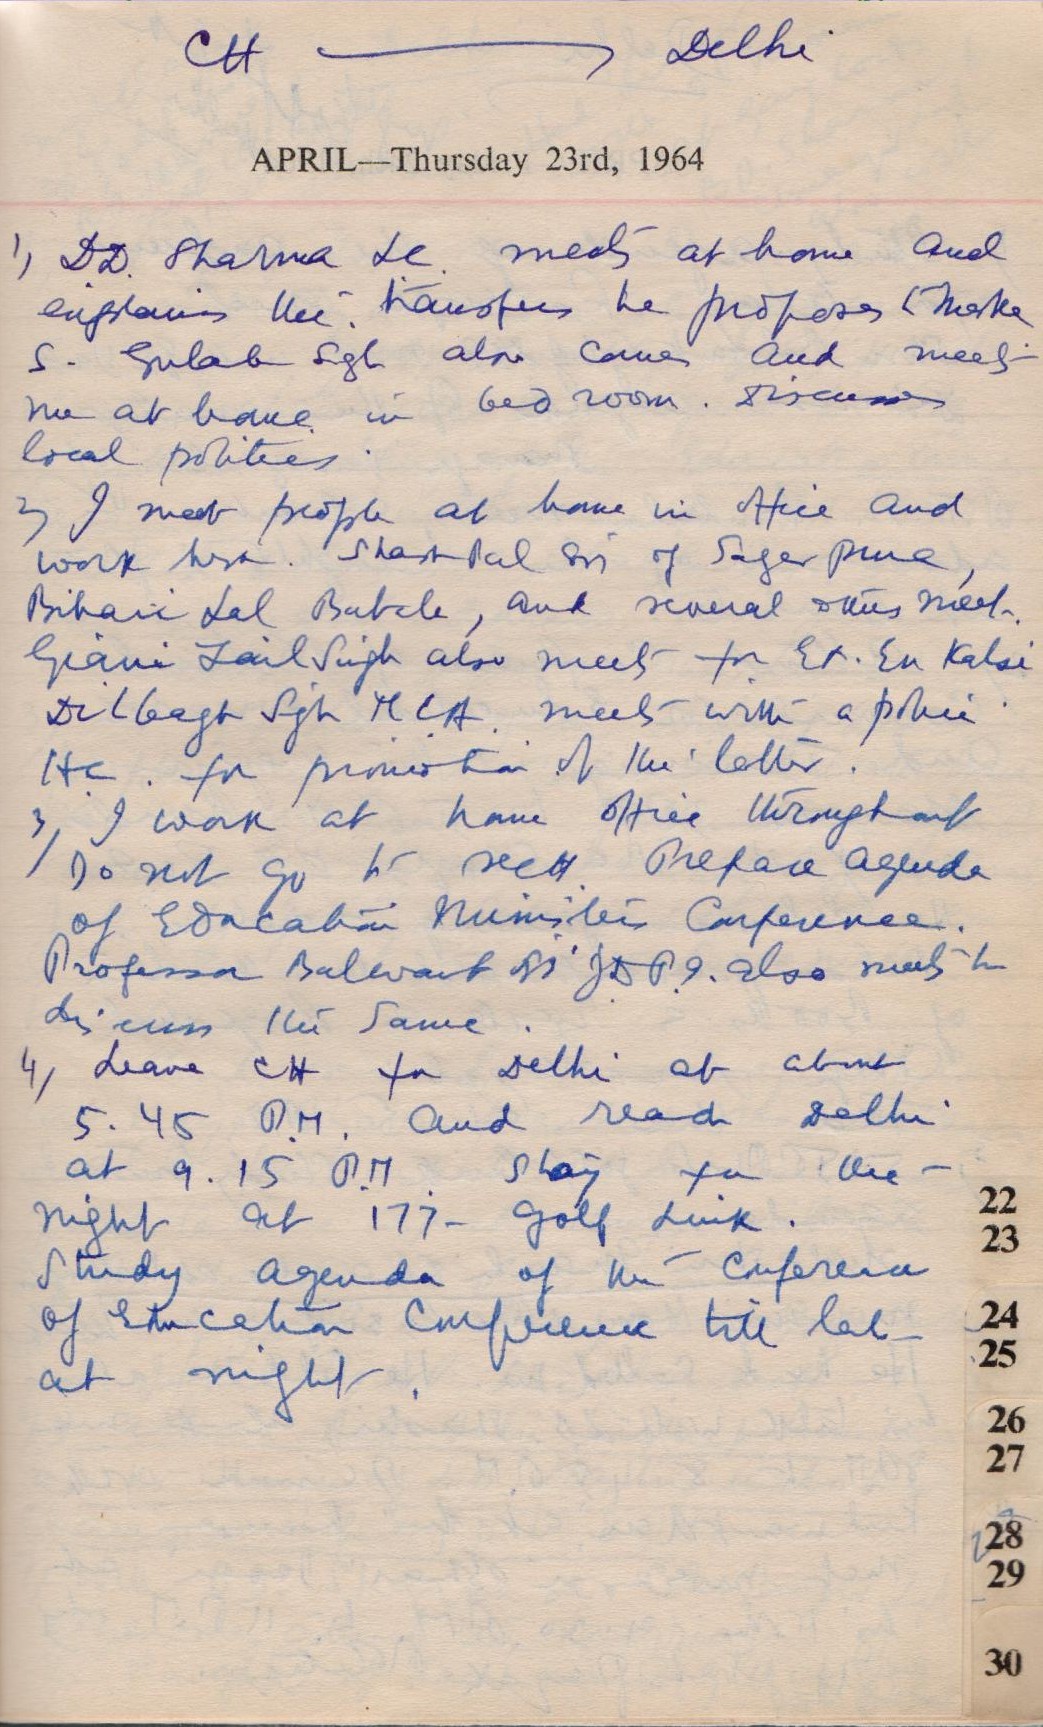 CH → Delhi
APRIL—Thursday 23rd, 1964
1) D.D. Sharma LC. meets at home and
explains the transfers he proposes to make
S. Gulab Sgh also comes and meets
me at home in bed room. Discusses
local politics.
2) I meet people at home in office and
work here. of Sagarpura,
Bihari Lal Batala, and several others meet.
Giani Zail Singh also meets for Ex. En Kalsi
Dilbagh Sgh MLA. meets with a police
H.C. for promotion of the latter.
3) I work at home office throughout
Do not go to sectt. Prepare agenda
of Education Ministers Conference.
Professor Balwant S. J.D.P.I. also meets to
discuss the same.
4) Leave CH for Delhi at about
5.45 P.M. and reach Delhi
at 9.15 P.M. Stay for the
night at 177- Golf Link.
Study agenda of the Conference
of Education Conference till late
at night.
22
23
24
25
26
27
28
29
30